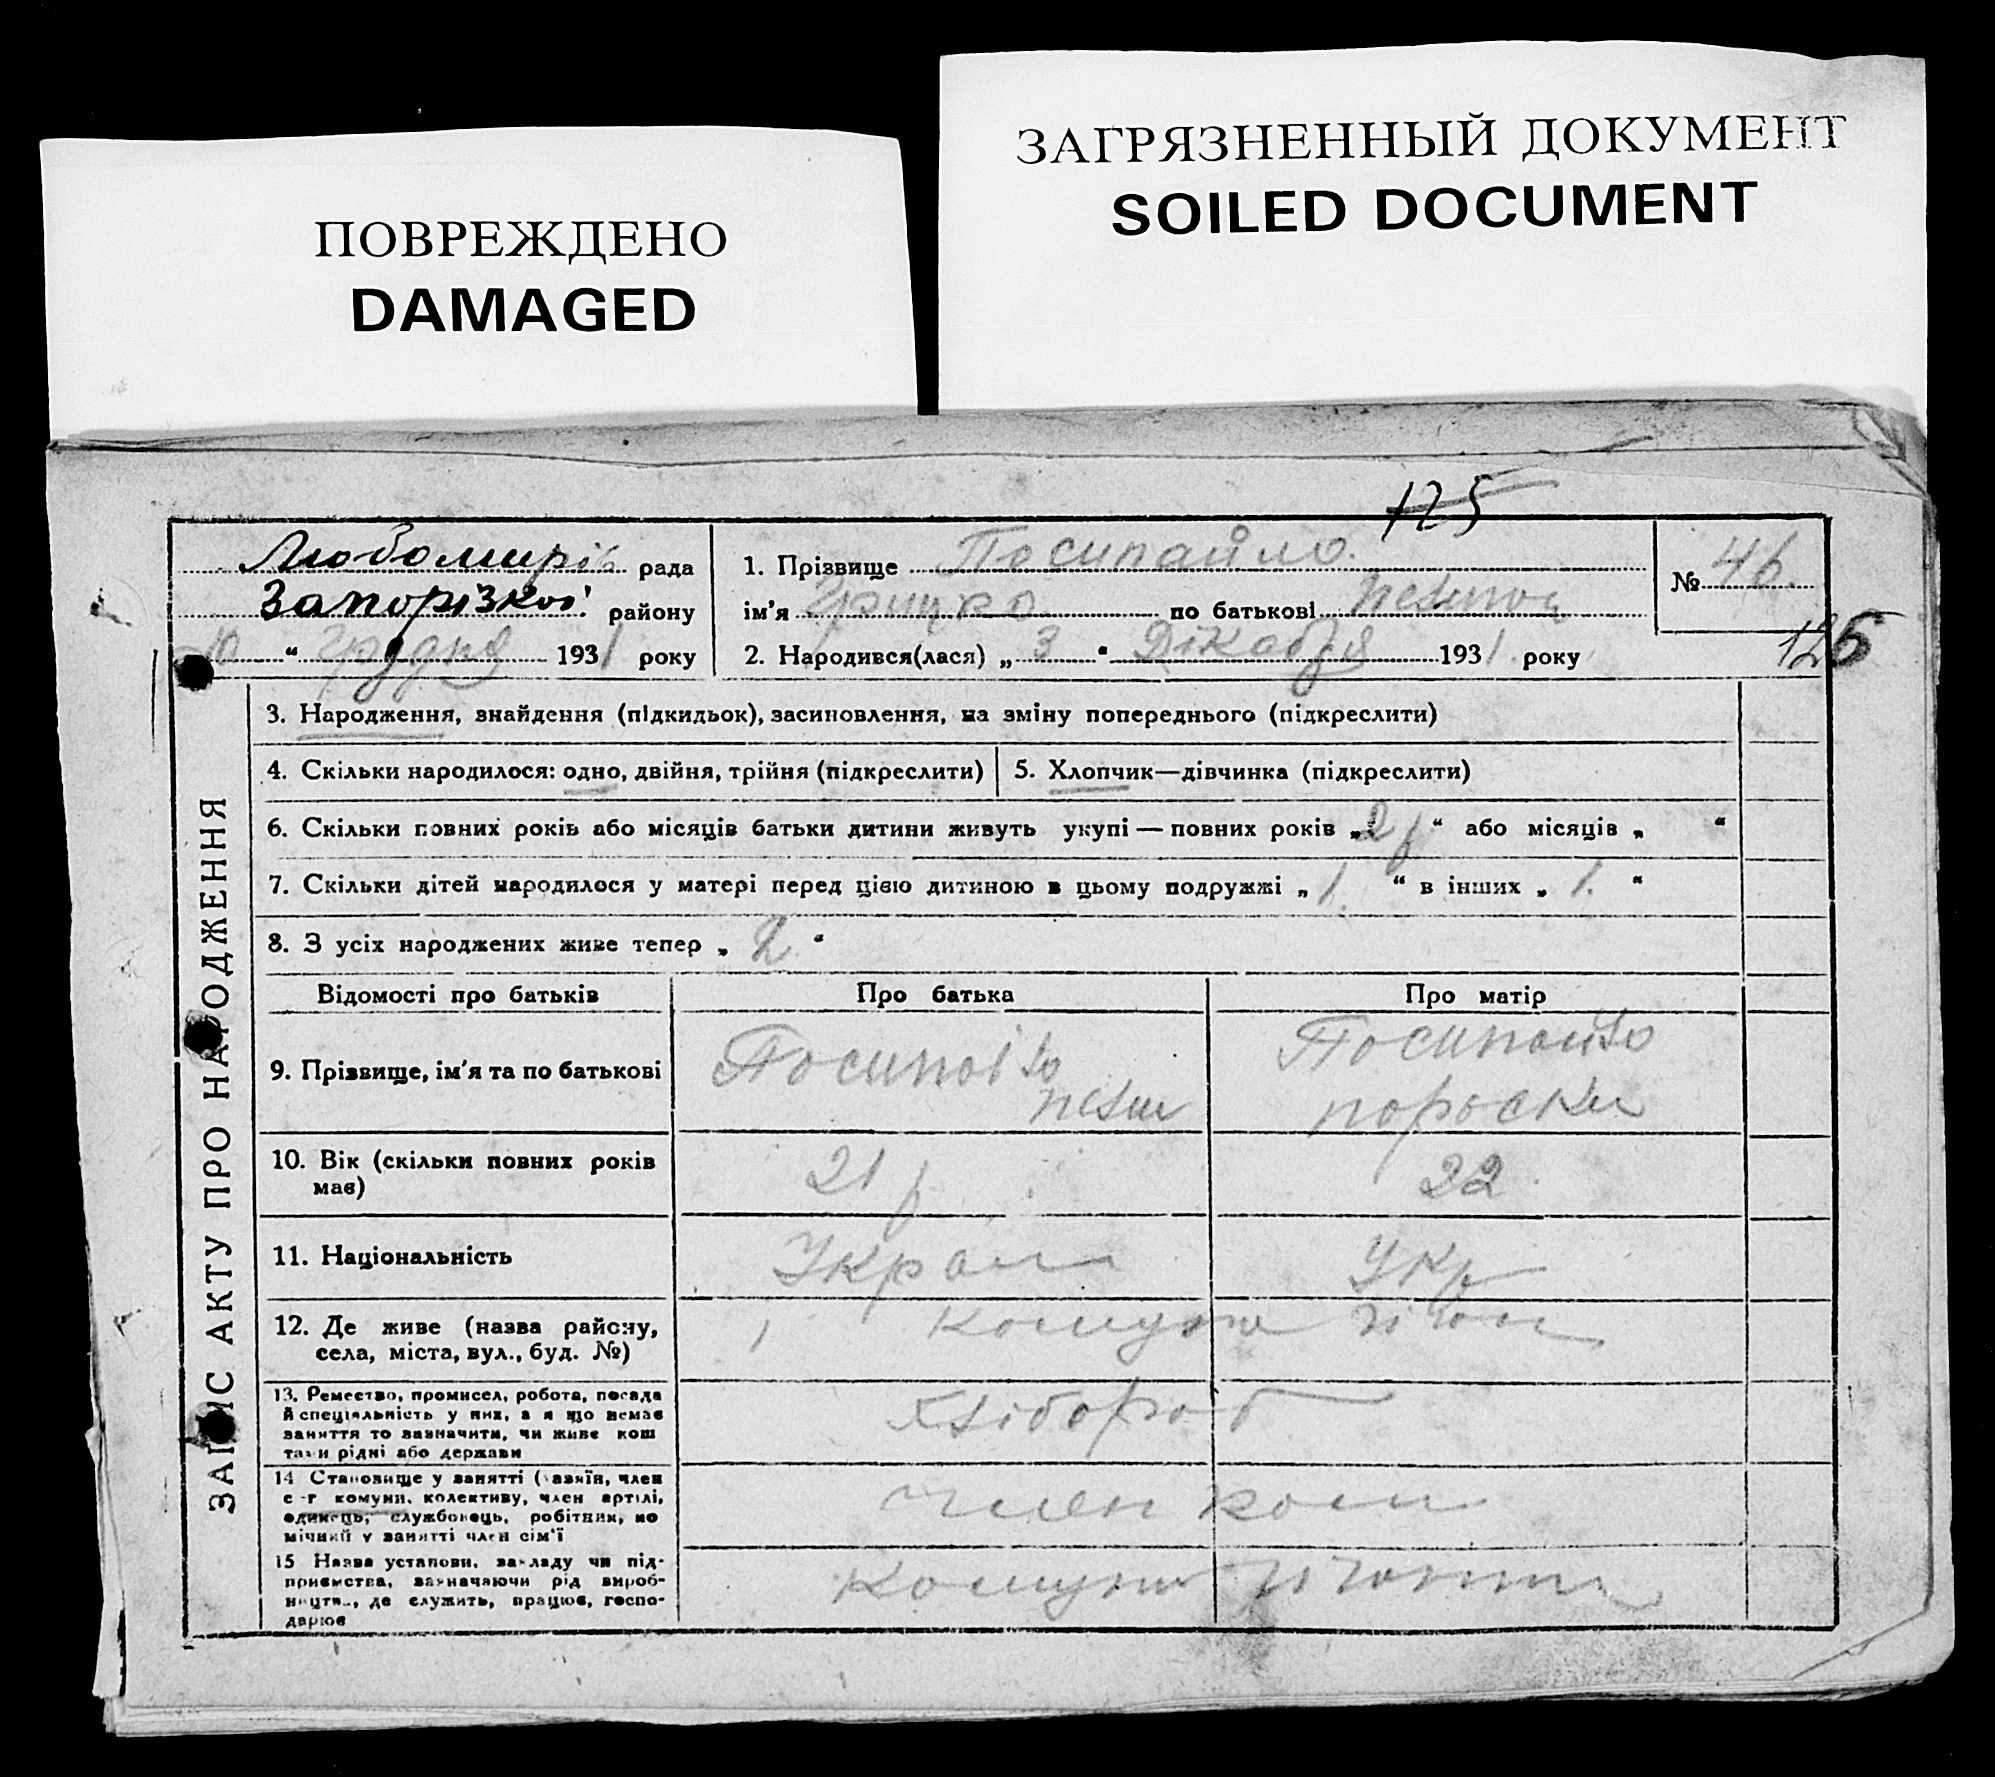 ПОВРЕЖДЕНО
DAMAGED
ЗАГРЯЗНЕННЫЙ ДОКУМЕНТ
SOILED DOCUMENT
125
Любомирів рада
Запорізкої району
10 “ грудня 1931 року
1. Прізвище Посипайло
ім'я Грицко по батькові
2. Народився(лася) „ 3 “ Дікабря 1931 року
№ 46.
126
ЗАПИС АКТУ ПРО НАРОДЖЕННЯ
3. Народження, знайдення (підкидьок), засиновлення, на зміну попереднього (підкреслити)
4. Скільки народилося: одно, двійня, трійня (підкреслити)
5. Хлопчик—дівчинка (підкреслити)
6. Скільки повних років або місяців батьки дитини живуть укупі — повних років „ 2 р “ або місяців „ “
7. Скільки дітей народилося у матері перед цією дитиною в цьому подружжі „ 1. “ в інших „ 1. “
8. З усіх народжених живе тепер „ 2 “
Відомості про батьків
Про батька
Про матір
9. Прізвище, ім'я та по батькові
Посипайло
Посипайло
10. Вік (скільки повних років має)
21 р
22
11. Національність
Україн
Укр
12. Де живе (назва району, села, міста, вул., буд. №)
Комуна
13. Ремество, промисел, робота, посада й спеціяльність у них, а якщо немає заняття то зазначити, чи живе коштами рідні або держави
Хлібороб
14 Становище у занятті (хазяїн, член с-г комуни, колективу, член артілі, одинець, службовець, робітник, помічний у занятті член сім'ї
член ком
15 Назва установи, закладу чи підприємства, зазначаючи рід виробництва, де служить, працює, господарює
Комуна